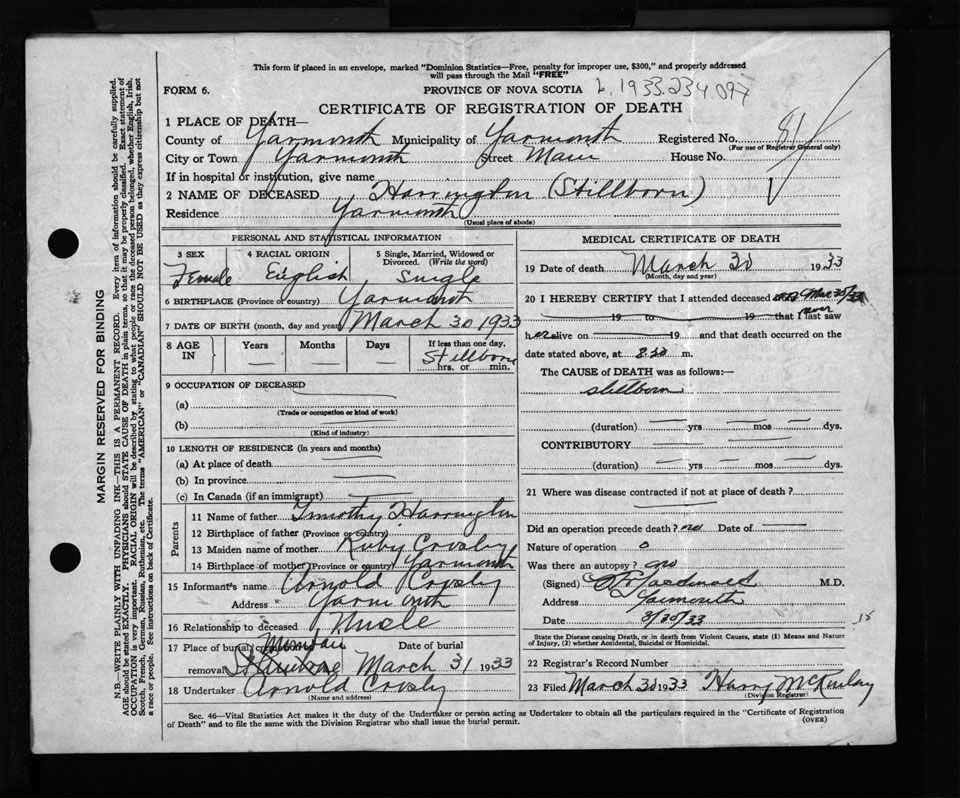 This form if placed in an envelope, marked "Dominion Statistics—Free, penalty for improper use, $300," and properly addressed
will pass through the Mail "FREE"
FORM 6. PROVINCE OF NOVA SCOTIA 1933.234.097
CERTIFICATE OF REGISTRATION OF DEATH
1 PLACE OF DEATH—
County of Yarmouth Municipality of Yarmouth Registered No. 81
(For use of Registrar General only)
City or Town Yarmouth Street Main House No.
If in hospital or institution, give name
2 NAME OF DECEASED Harrington (Stillborn)
Residence Yarmouth
(Usual place of abode)
PERSONAL AND STATISTICAL INFORMATION
3 SEX 4 RACIAL ORIGIN 5 Single, Married, Widowed or Divorced. (Write the word)
Female English Single
6 BIRTHPLACE (Province or country) Yarmouth
7 DATE OF BIRTH (month, day and year) March 30 1933
8 AGE IN Years Months Days If less than one day,
Stillborn
hrs. or min.
9 OCCUPATION OF DECEASED
(a)
(Trade or occupation or kind of work)
(b)
(Kind of industry)
10 LENGTH OF RESIDENCE (in years and months)
(a) At place of death
(b) In province
(c) In Canada (if an immigrant)
Parents
11 Name of father Timothy Harrington
12 Birthplace of father (Province or country)
13 Maiden name of mother Ruby Crosby
14 Birthplace of mother (Province or country) Yarmouth
15 Informant's name Arnold Crosby
Address Yarmouth
16 Relationship to deceased Uncle
17 Place of burial, cremation Mountain Date of burial
removal March 31 1933
18 Undertaker Arnold Crosby
(Name and address)
MEDICAL CERTIFICATE OF DEATH
19 Date of death March 30 1933
(Month, day and year)
20 I HEREBY CERTIFY that I attended deceased on Mar 30/33
19 to 19 that I last saw
never
her alive on 19 and that death occurred on the
date stated above, at 8.30 m.
The CAUSE of DEATH was as follows:—
stillborn
(duration) yrs mos dys.
CONTRIBUTORY
(duration) yrs mos dys.
21 Where was disease contracted if not at place of death?
Did an operation precede death? no Date of
Nature of operation o
Was there an autopsy? no
(Signed) M.D.
Address Yarmouth
Date 3/30/33
State the Disease causing Death, or in death from Violent Causes, state (1) Means and Nature
of Injury, (2) whether Accidental, Suicidal or Homicidal.
22 Registrar's Record Number
23 Filed March 30 1933 Harry McKinlay
(Division Registrar)
Sec. 46—Vital Statistics Act makes it the duty of the Undertaker or person acting as Undertaker to obtain all the particulars required in the "Certificate of Registration
of Death" and to file the same with the Division Registrar who shall issue the burial permit. (OVER)
MARGIN RESERVED FOR BINDING
N.B.—WRITE PLAINLY WITH UNFADING INK—THIS IS A PERMANENT RECORD. Every item of information should be carefully supplied.
AGE should be stated EXACTLY. PHYSICIANS should STATE CAUSE OF DEATH in plain terms, so that it may be properly classified. Exact statement of
OCCUPATION is very important. RACIAL ORIGIN will be described by stating to what people or race the deceased person belonged, whether English, Irish,
Scotch, French, German, Russian, Ruthenian, etc. The terms "AMERICAN" or "CANADIAN" SHOULD NOT BE USED as they express citizenship but not
a race or people. See instructions on back of Certificate.